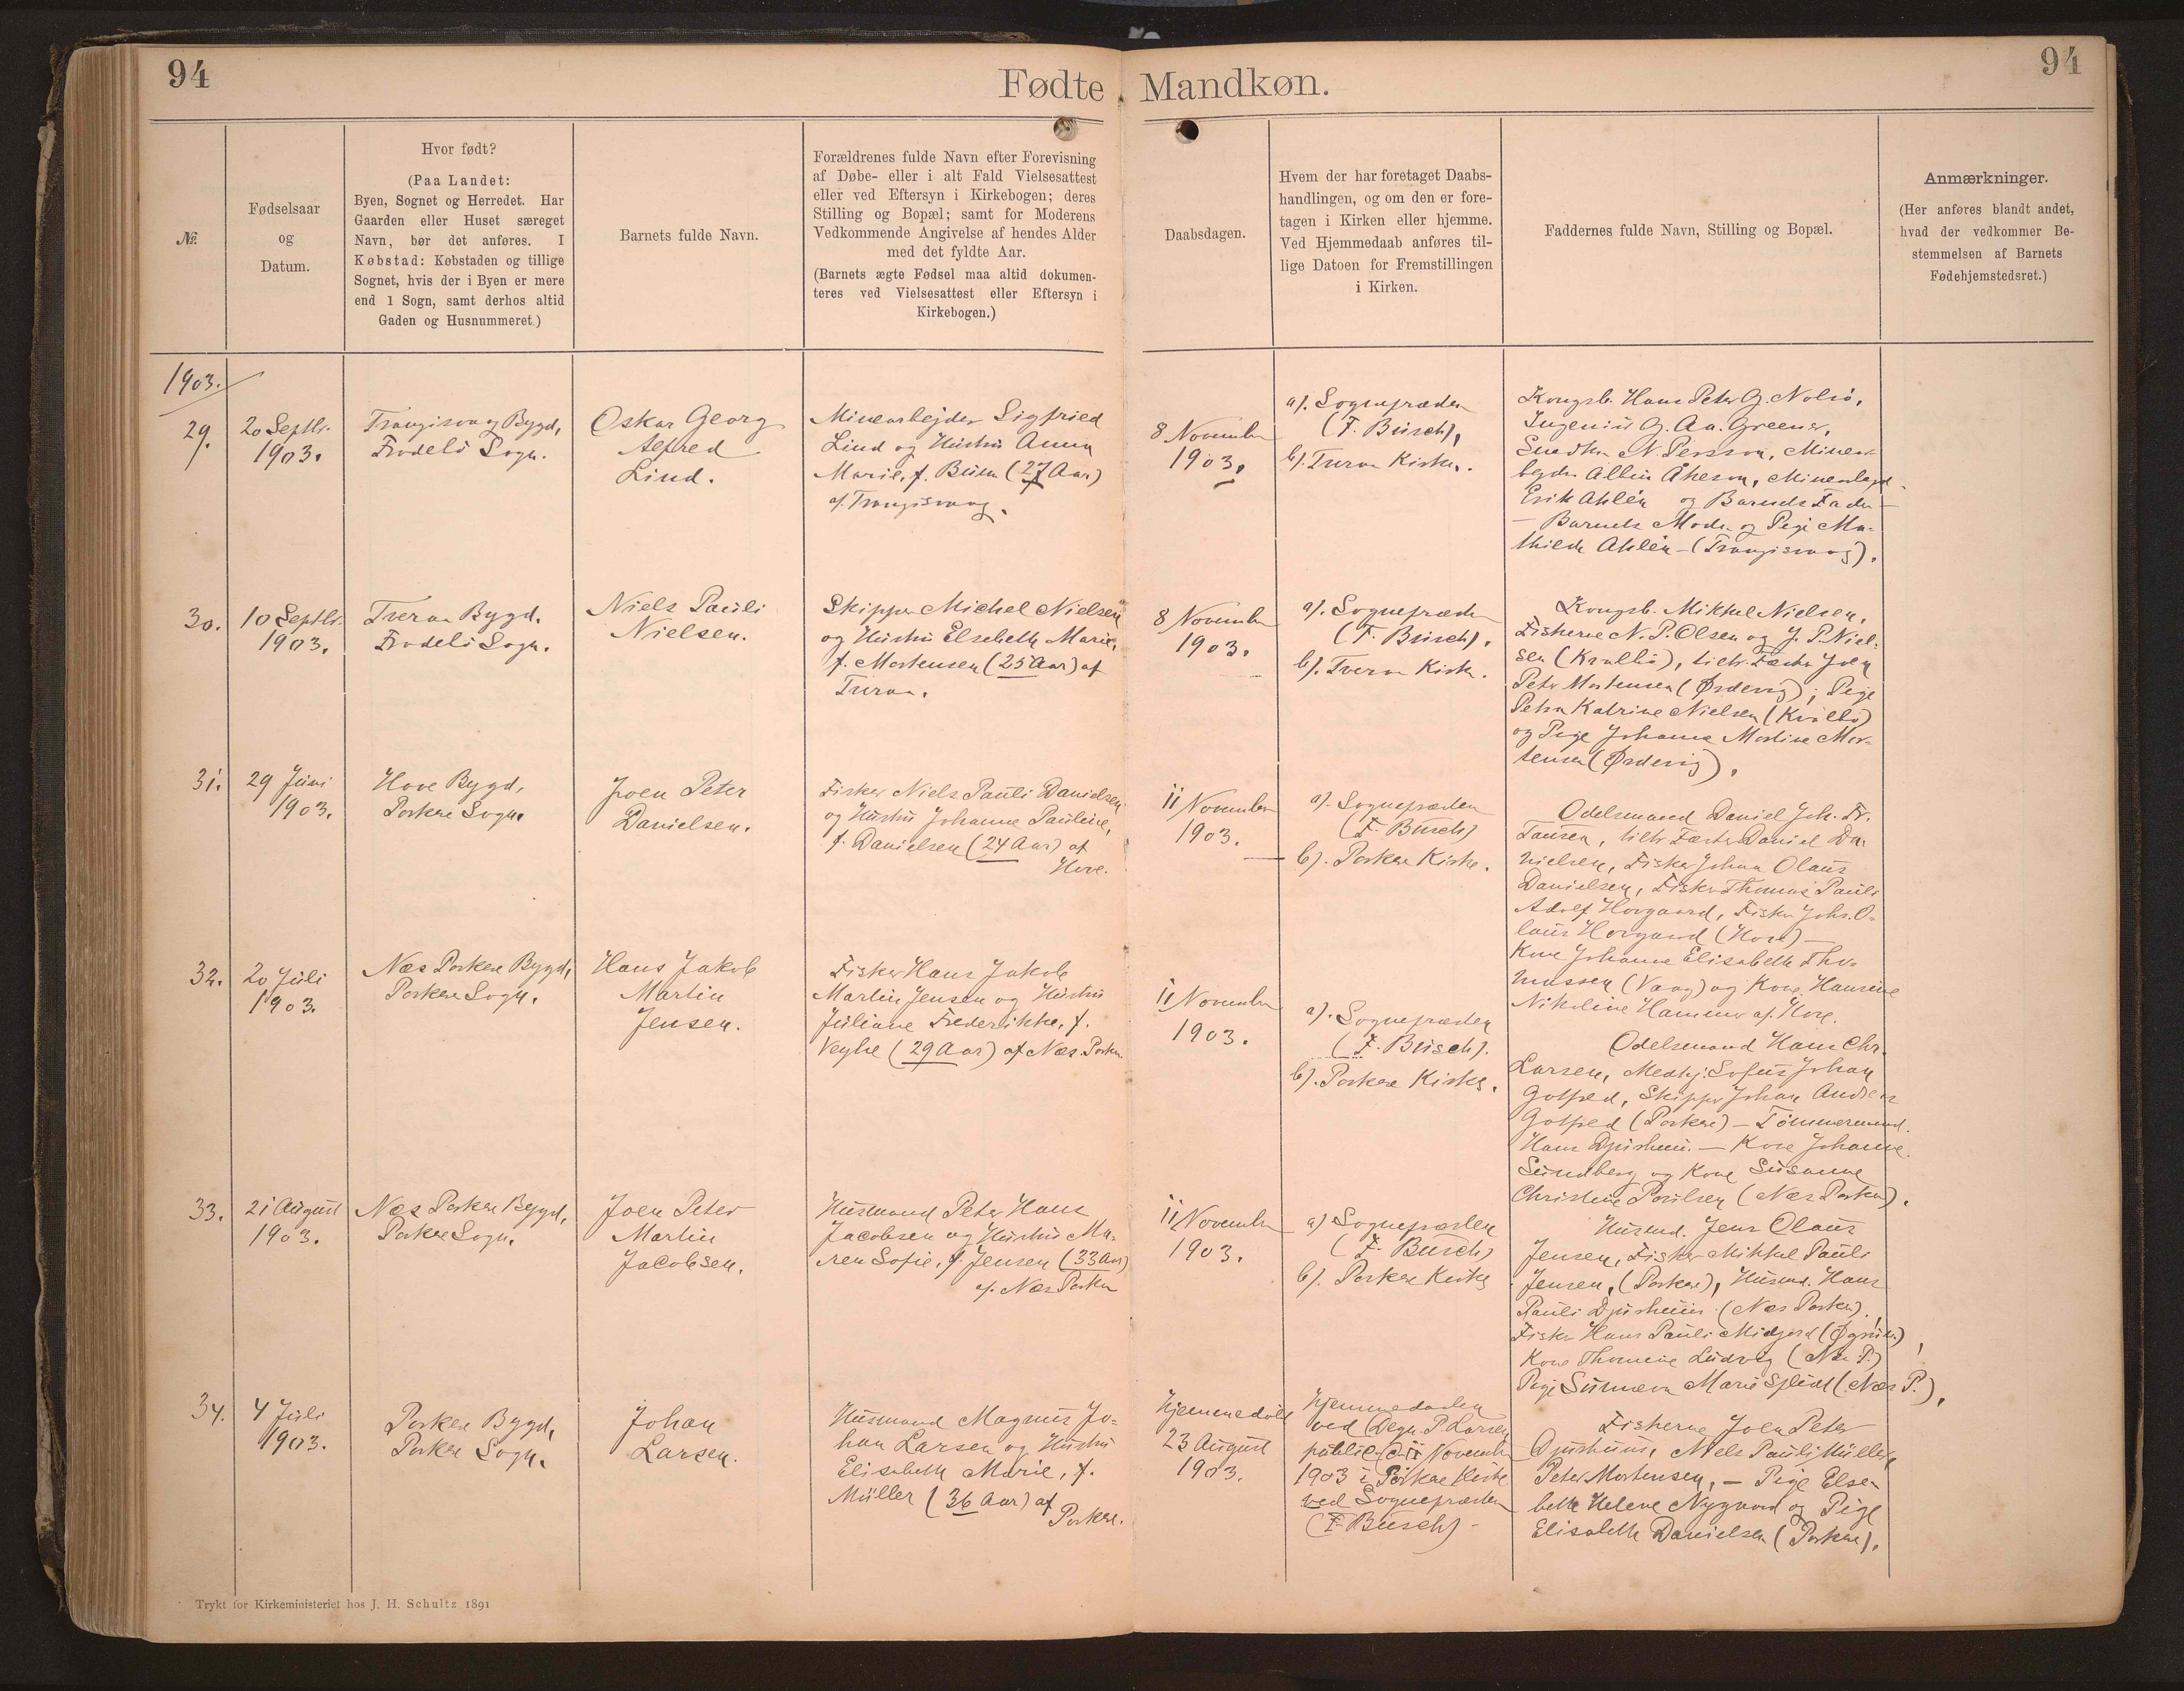 94
Fødte Mandkøn.
94
№.
Fødselsaar
og
Datum.
Hvor født?
(Paa Landet:
Byen, Sognet og Herredet. Har
Gaarden eller Huset særeget
Navn, bør det anføres. I
Købstad: Købstaden og tillige
Sognet, hvis der i Byen er mere
end 1 Sogn, samt derhos altid
Gaden og Husnummeret.)
Barnets fulde Navn.
Forældrenes fulde Navn efter Forevisning
af Døbe- eller i alt Fald Vielsesattest
eller ved Eftersyn i Kirkebogen; deres
Stilling og Bopæl; samt for Moderens
Vedkommende Angivelse af hendes Alder
med det fyldte Aar.
(Barnets ægte Fødsel maa altid dokumen-
teres ved Vielsesattest eller Eftersyn i
Kirkebogen.)
Daabsdagen.
Hvem der har foretaget Daabs-
handlingen, og om den er fore-
tagen i Kirken eller hjemme.
Ved Hjemmedaab anføres til-
lige Datoen for Fremstillingen
i Kirken.
Faddernes fulde Navn, Stilling og Bopæl.
Anmærkninger.
(Her anføres blandt andet,
hvad der vedkommer Be-
stemmelsen af Barnets
Fødehjemstedsret.)
1903.
29.
20 Septbr.
1903.
Trangisvaag Bygd,
Frodebø Sogn.
Oskar Georg
Alfred
Lind.
Minearbejder Sigfried
Lind og Hustru Anna
Marie, f. (27 Aar)
af Trangisvaag.
8 November
1903.
a). Sognepræsten
(F. Busch),
b). Tveraa Kirke.
Kongsb. Hans Peter G. Nolsø,
Ingeniør G. Aa. Greener,
N. Persson, Minear-
bejder Albin Åkeson,
Erik Ahlén og Barnets Fader -
- Barnets Moder og Pige Ma-
thilde Ahlén - (Trangisvaag).
30.
10 Septbr.
1903.
Tveraa Bygd.
Frodebø Sogn.
Niels Pauli
Nielsen.
Skipper Michel Nielsen
og Hustru Elsebeth Marie,
f. Mortensen (25 Aar) af
Tveraa.
8 November
1903.
a). Sognepræsten
(F. Busch).
b). Tveraa Kirke.
Kongsb. Mikkel Nielsen,
Fiskerne N. P. Olsen og J. P. Niel-
sen (Kralbø), Fæster Joen
Peter Mortensen (Ørdevig); Pige
Petra Katrine Nielsen (Kralbø)
og Pige Johanne Martine Mor-
tensen (Ørdevig).
31.
29 Juni
1903.
Hove Bygd,
Porkere Sogn.
Joen Peter
Danielsen.
Fisker Niels Pauli Danielsen
og Hustru Johanne Pauline,
f. Danielsen (24 Aar) af
Hove.
11 November
1903.
a). Sognepræsten
(F. Busch)
b). Porkere Kirke.
Odelsmand Daniel Joh. Fr.
Tausen, Fæster Daniel Da-
nielsen, Fisker Johan Olaus
Danielsen, Fisker Thomas Pauli
Adolf Hovgaard, Fisker Johs. O-
laus Hovgaard (Hove) -
Kone Johanne Elisabeth Tho-
massen (Vaag) og Kone Hansine
Nikoline Hammer af Hove.
32.
20 Juli
1903.
Næs Porkere Bygd,
Porkere Sogn.
Hans Jakob
Martin
Jensen.
Fisker Hans Jakob
Martin Jensen og Hustru
Juliane Frederikke, f.
Veyhe (29 Aar) af Næs. Porkere
11 November
1903.
a). Sognepræsten
(F. Busch).
b). Porkere Kirke.
Odelsmand Hans Chr.
Larsen, Medhj. Sofus Johan
Gotfred, Skipper Johan Andreas
Gotfred (Porkere) - Tømmermand
Hans Djurhuus. - Kone Johanne
Sundberg og Kone Susanne
Christine Poulsen (Næs Porkere).
33.
21 August
1903.
Næs Porkere Bygd,
Porkere Sogn.
Joen Peter
Martin
Jacobsen.
Husmand Peter Hans
Jacobsen og Hustru Ma-
ren Sofie, f. Jensen (33 Aar)
af Næs Porkere
11 November
1903.
a) Sognepræsten
(F. Busch)
b). Porkere Kirke
Husmd. Jens Olaus
Jensen, Fisker Mikkel Pauli
Jensen, (Porkere), Husmd. Hans
Pauli Djurhuus (Næs Porkere),
Fisker Hans Pauli Midjord
Kone Thomine Ludvig (Næs P.),
Pige Sunneva Marie Splidt (Næs P.).
34.
4 Juli
1903.
Porkere Bygd,
Porkere Sogn.
Johan
Larsen.
Husmand Magnus Jo-
han Larsen og Hustru
Elisabeth Marie, f.
Müller (36 Aar) af
Porkere.
Hjemmedøbt
23 August
1903.
Hjemmedaaben
ved Degn P. Larsen,
public. d. 11 November
1903 i Porkere Kirke
ved Sognepræsten
(F. Busch) -
Fiskerne Joen Peter
Djurhuus, Niels Pauli Müller,
Peter Mortensen, - Pige Else-
beth Helene Nygaard og Pige
Elisabeth Danielsen (Porkere).
Trykt for Kirkeministeriet hos J. H. Schultz 1891